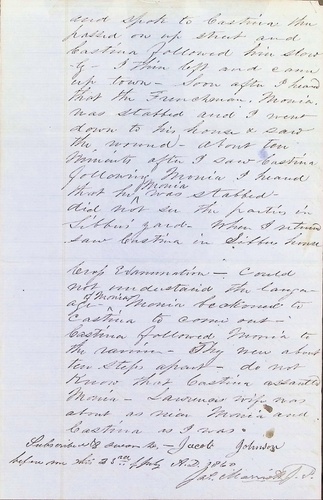 and spok to Castina then
passed on up street and
Castina followed him slow
ly - I then left and came
up town - Soon after I heard
that the Frenchman, Monia,
was stabbed and I went
down to his house & saw
the wound - About ten
Minuets after I saw Castina
following Monia I heard
that he Monia was stabbed -
did not see the parties in
yard - When I return
saw Castina in house
Crop Examination - Could
not understand the langu
age of Monia - Monia beckoned to
Castina to come out -
Castina followed Monia to
the ravine - They were about
ten steps apart - do not
Know that Castina assaulted
Monia - Lawrence wife was
about as near Monia and
Castina as I was.
Subscribed & sworn to - Jacob Johnson
before me this 2nd A.D. 1860
Jas. J.P.